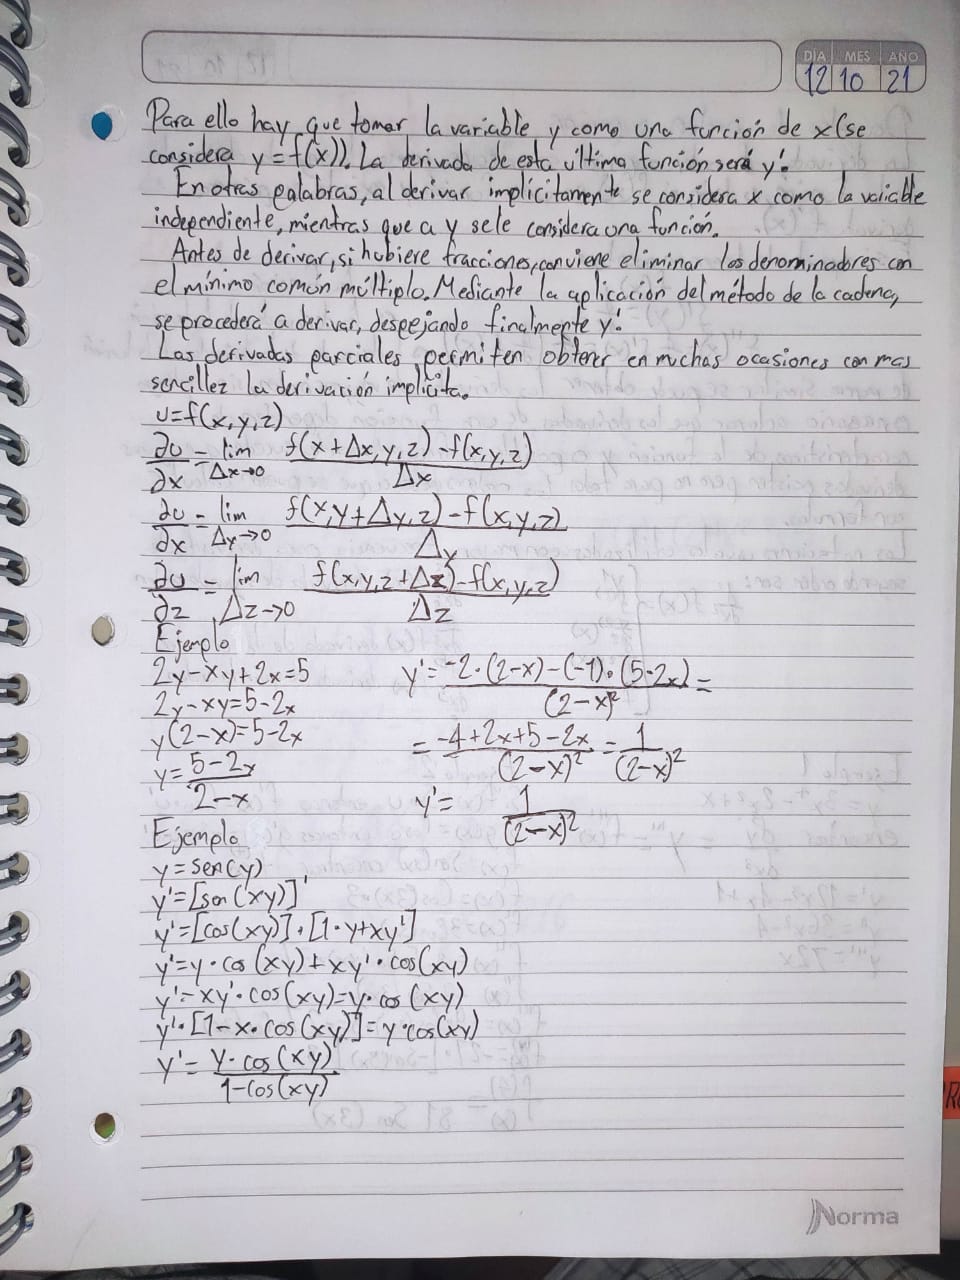 DÍA MES AÑO
12 10 21
Para ello hay que tomar la variable y como una función de x (se
considera y=f(x)). La derivada de esta última función será y'.
En otras palabras, al derivar implicitamente se considera x como la variable
independiente, mientras que a y se le considera una función.
Antes de derivar, si hubiere fracciones, conviene eliminar los denominadores con
el mínimo común múltiplo. Mediante la aplicación del método de la cadena,
se procederá a derivar, despejando finalmente y'.
Las derivadas parciales permiten obtener en muchas ocasiones con mas
sencillez la derivación implícita.
u=f(x,y,z)
∂u/∂x = lim Δx→0 f(x+Δx,y,z)-f(x,y,z)/Δx
∂u/∂x = lim Δy→0 f(x,y+Δy,z)-f(x,y,z)/Δy
∂u/∂z = lim Δz→0 f(x,y,z+Δz)-f(x,y,z)/Δz
Ejemplo
2y-xy+2x=5
2y-xy=5-2x
y(2-x)=5-2x
y=5-2x/2-x
y'=-2·(2-x)-(-1)·(5-2x)/(2-x)²=
=-4+2x+5-2x/(2-x)²=1/(2-x)²
y'=1/(2-x)²
Ejemplo
y=sen(y)
y'=[sen(xy)]'
y'=[cos(xy)]·[1·y+xy']
y'=y·cos(xy)+xy'·cos(xy)
y'-xy'·cos(xy)=y·cos(xy)
y'·[1-x·cos(xy)]=y·cos(xy)
y'=y·cos(xy)/1-cos(xy)
Norma